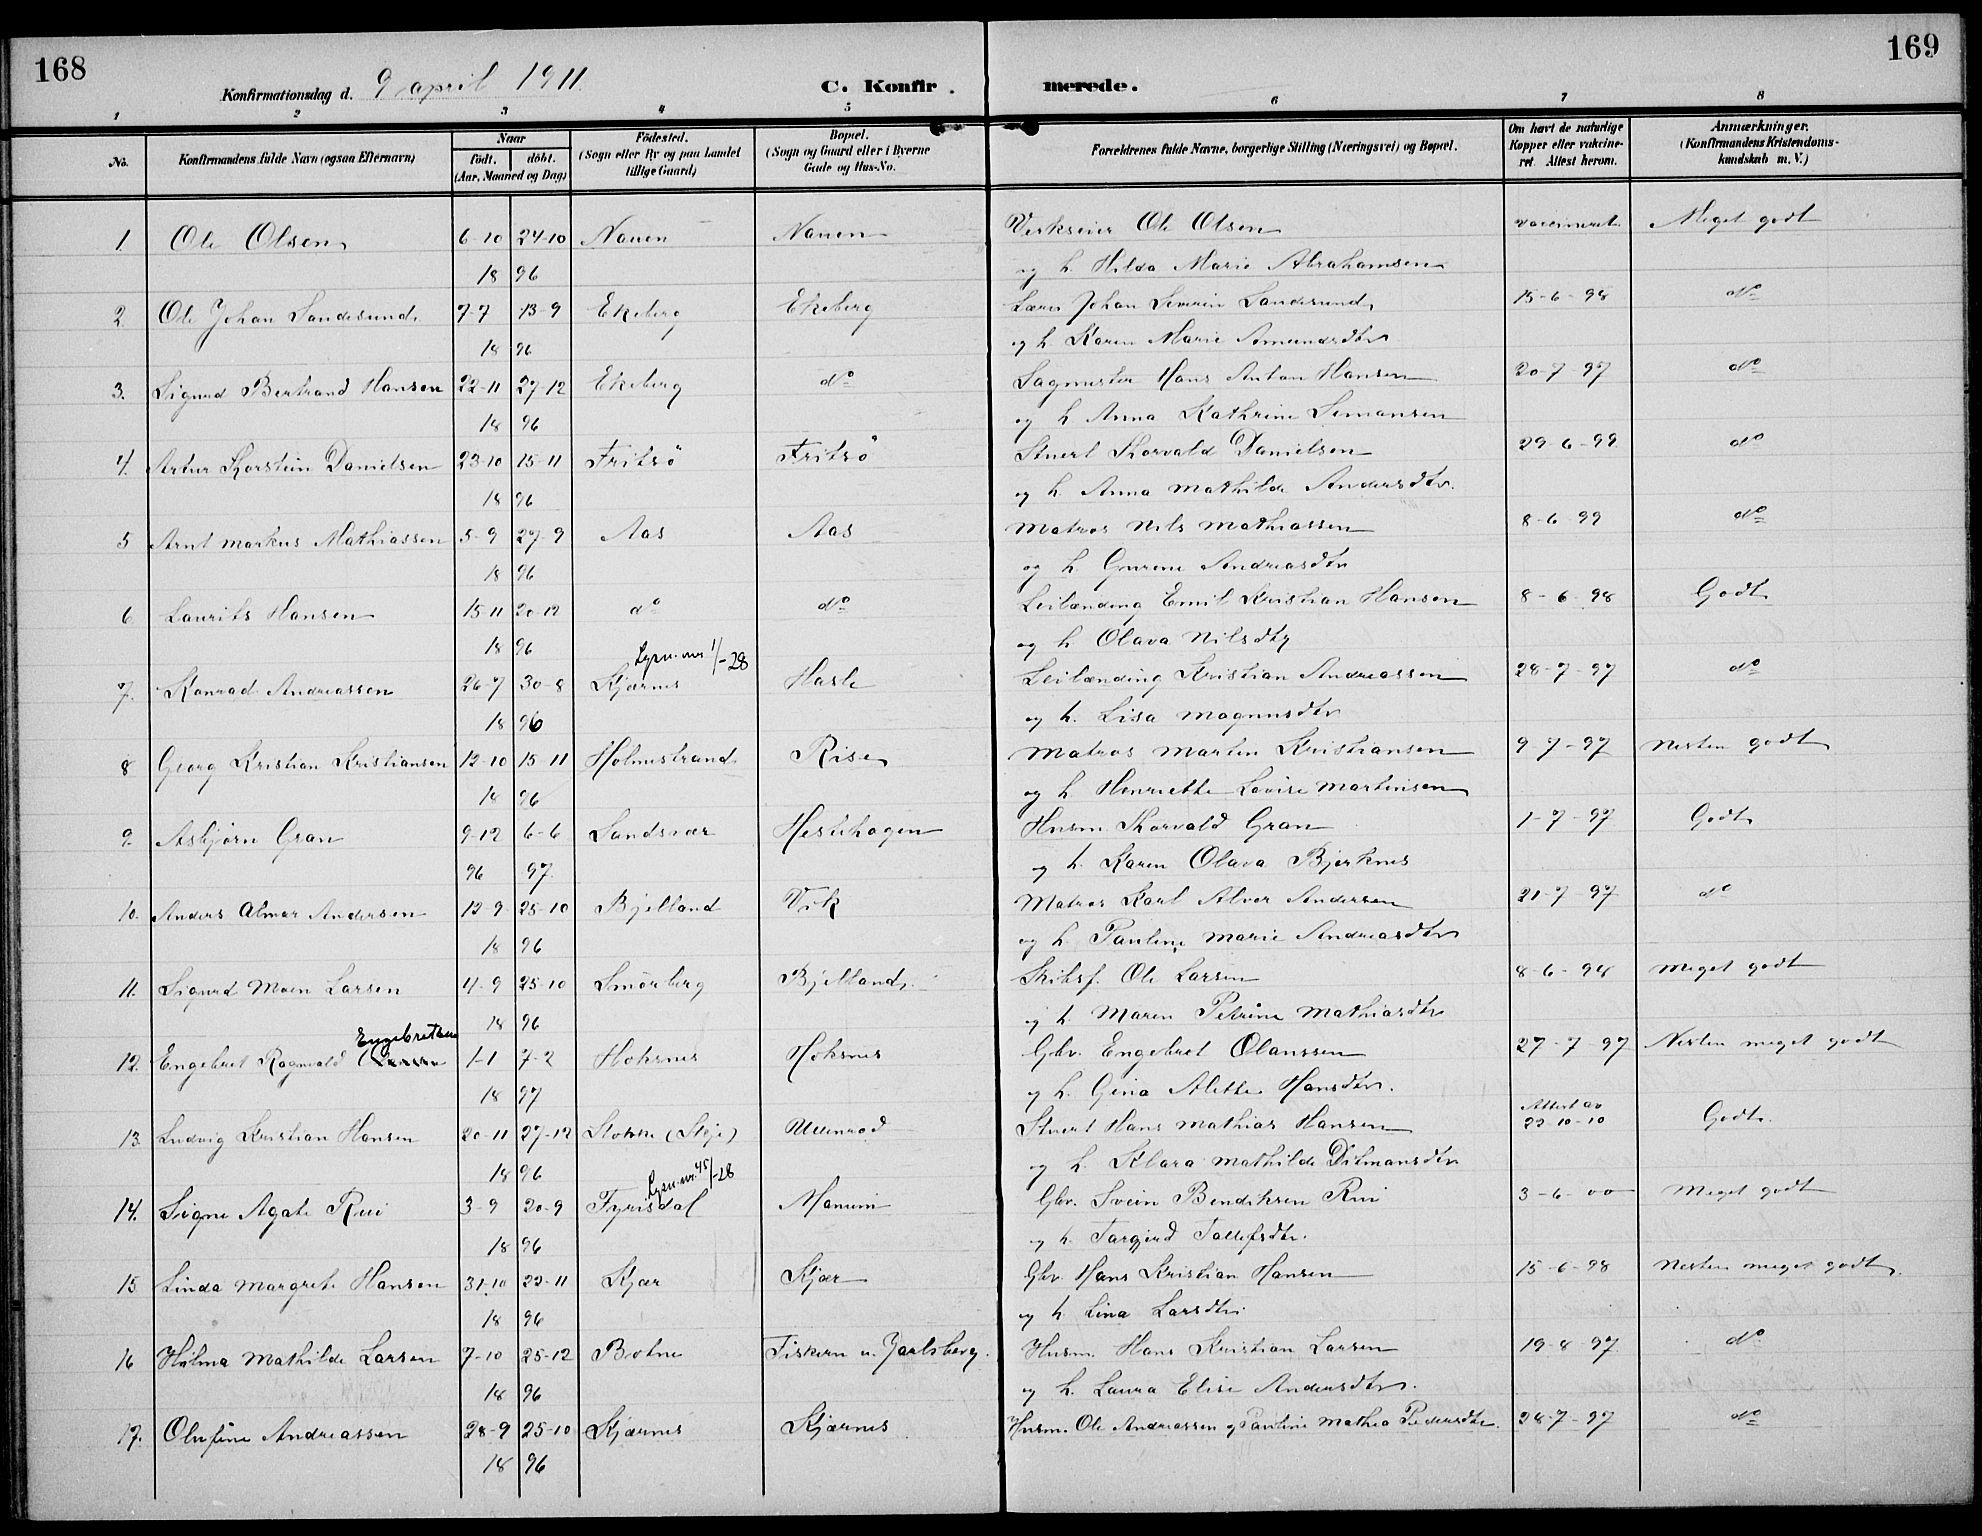 168
169
Konfirmationsdag d. 9 april 1911. C. Konfir. merede.
1 2 3 4 5 6 7 8
No. Konfirmandens fulde Navn (ogsaa Efternavn) Naar født. døbt. (Aar, Maaned og Dag) Fødested. (Sogn eller By og paa Landet tillige Gaard) Bopæl. (Sogn og Gaard eller i Byerne Gade og Hus-No. Forældrenes fulde Navne, borgerlige Stilling (Næringsvei) og Bopæl. Om havt de naturlige Kopper eller vakcineret. Attest herom. Anmærkninger. (Konfirmandens Kristendomskundskab m. V.)
1. Ole Olsen 6-10 24-10 Nauen Nauen Verkseier Ole Olsen vaccineret. Meget godt
18 96 og h. Hilda Marie Abrahamsen
2 Ole Johan Sandesund 7-7 13-9 Ekeberg Ekeberg Lærer Johan Severin Sandesund 15-6-98 do
18 96 og h. Karen Marie Amundsdtr
3. Sigurd Bertrand Hansen 22-11 27-12 Ekeberg do Sagmester Hans Anton Hansen 20-7-97 do
18 96 og h Anna Kathrine Simonsen
4. Artur Thorstein Danielsen 23-10 15-11 Fritsö Fritsö Stuert Thorvald Danielsen 29-6-99 do
18 96 og h. Anna Mathilde Andersdtr.
5 Arnt Markus Mathiassen 5-9 27-9 Aas Aas Matros Nils Mathiassen 8-6-99 do
18 96 og h Gurine Andreasdtr
6 Laurits Hansen 15-11 20-12 do do Leilænding Emil Kristian Hansen 8-6-98 Godt
18 96 og h Olava Nilsdtr
Lysn. nr 1/-28
7. Konrad Andreassen 26-7 30-8 Kjærnes Hasle Leilænding Kristian Andreassen 28-7-97 do
18 96 og h. Lisa Magnusdtr
8 Georg Kristian Kristiansen 12-10 15-11 Holmestrand Rise Matros Martin Kristiansen 9-7-97 Nesten godt
18 96 og h Henriette Lovise Martinsen
9. Asbjørn Gran 9-12 6-6 Sandsvær Hestehagen Husm. Thorvald Gran 1-7-97 Godt
96 97 og h. Karen Olava Bjerknes
10. Anders Almar Andersen 12-9 25-10 Bjelland Vik Matros Karl Alver Andersen 21-7-97 do
18 96 og h. Pauline Marie Andreasdtr
11. Sigurd Moen Larsen 4-9 25-10 Smörberg Bjelland Skibsf. Ole Larsen 8-6-98 Meget godt
18 96 og h Maren Petrine Mathiasdtr
Engebretsen
12. Engebret Ragnvald 1-1 7-2 Hoksnes Hoksnes Gbr. Engebret Olanssen 27-7-97 Nesten meget godt
18 97 og h. Gina Alette Hansdtr.
13 Ludvig Kristian Hansen 20-11 27-12 Stokke (Skje) Unnerød Stuert Hans Mathias Hansen Attest av 22-10-10 Godt.
18 96 og h. Klara Mathilde Ditmansdtr
Lysn. nr. 45/-28
14. Signe Agate Rui 3-9 20-9 Fyrisdal Manum Gbr. Svein Bendiksen Rui 3-6-00 Meget godt
18 96 og h. Targjerd Tallefsdtr.
15 Linda Margrete Hansen 31-10 22-11 Kjær Kjær Gbr. Hans Kristian Hansen 15-6-98 Nesten meget godt.
18 96 og h Lina Larsdtr.
16 Hilma Mathilde Larsen 7-10 25-12 Botne Fiskern u. Jarlsberg. Husm. Hans Kristian Larsen 19-8-97 do
18 96 og h. Laura Elise Andersdtr.
17. Olufine Andreassen 28-9 25-10 Kjærnes Kjærnes Husm. Ole Andreassen og Pauline Mathea Pedersdtr. 28-7-97 do
18 96